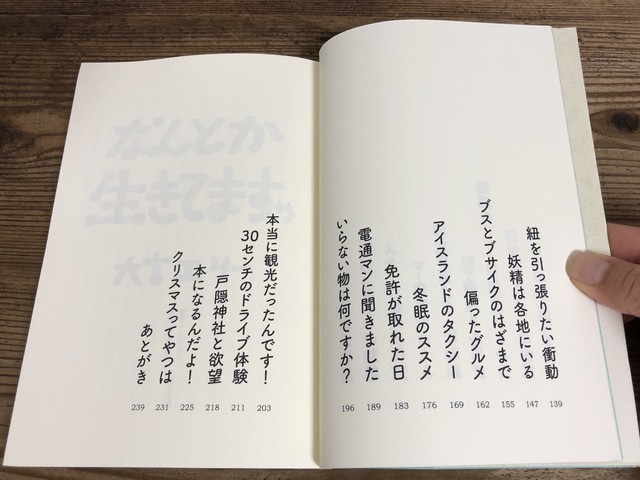 紐を引っ張りたい衝動 139
妖精は各地にいる 147
ブスとブサイクのはざまで 155
偏ったグルメ 162
アイスランドのタクシー 169
冬眠のススメ 176
免許が取れた日 183
電通マンに聞きました 189
いらない物は何ですか？ 196
本当に観光だったんです！ 203
30センチのドライブ体験 211
戸隠神社と欲望 218
本になるんだよ！ 225
クリスマスってやつは 231
あとがき 239
なんとか
生きてます